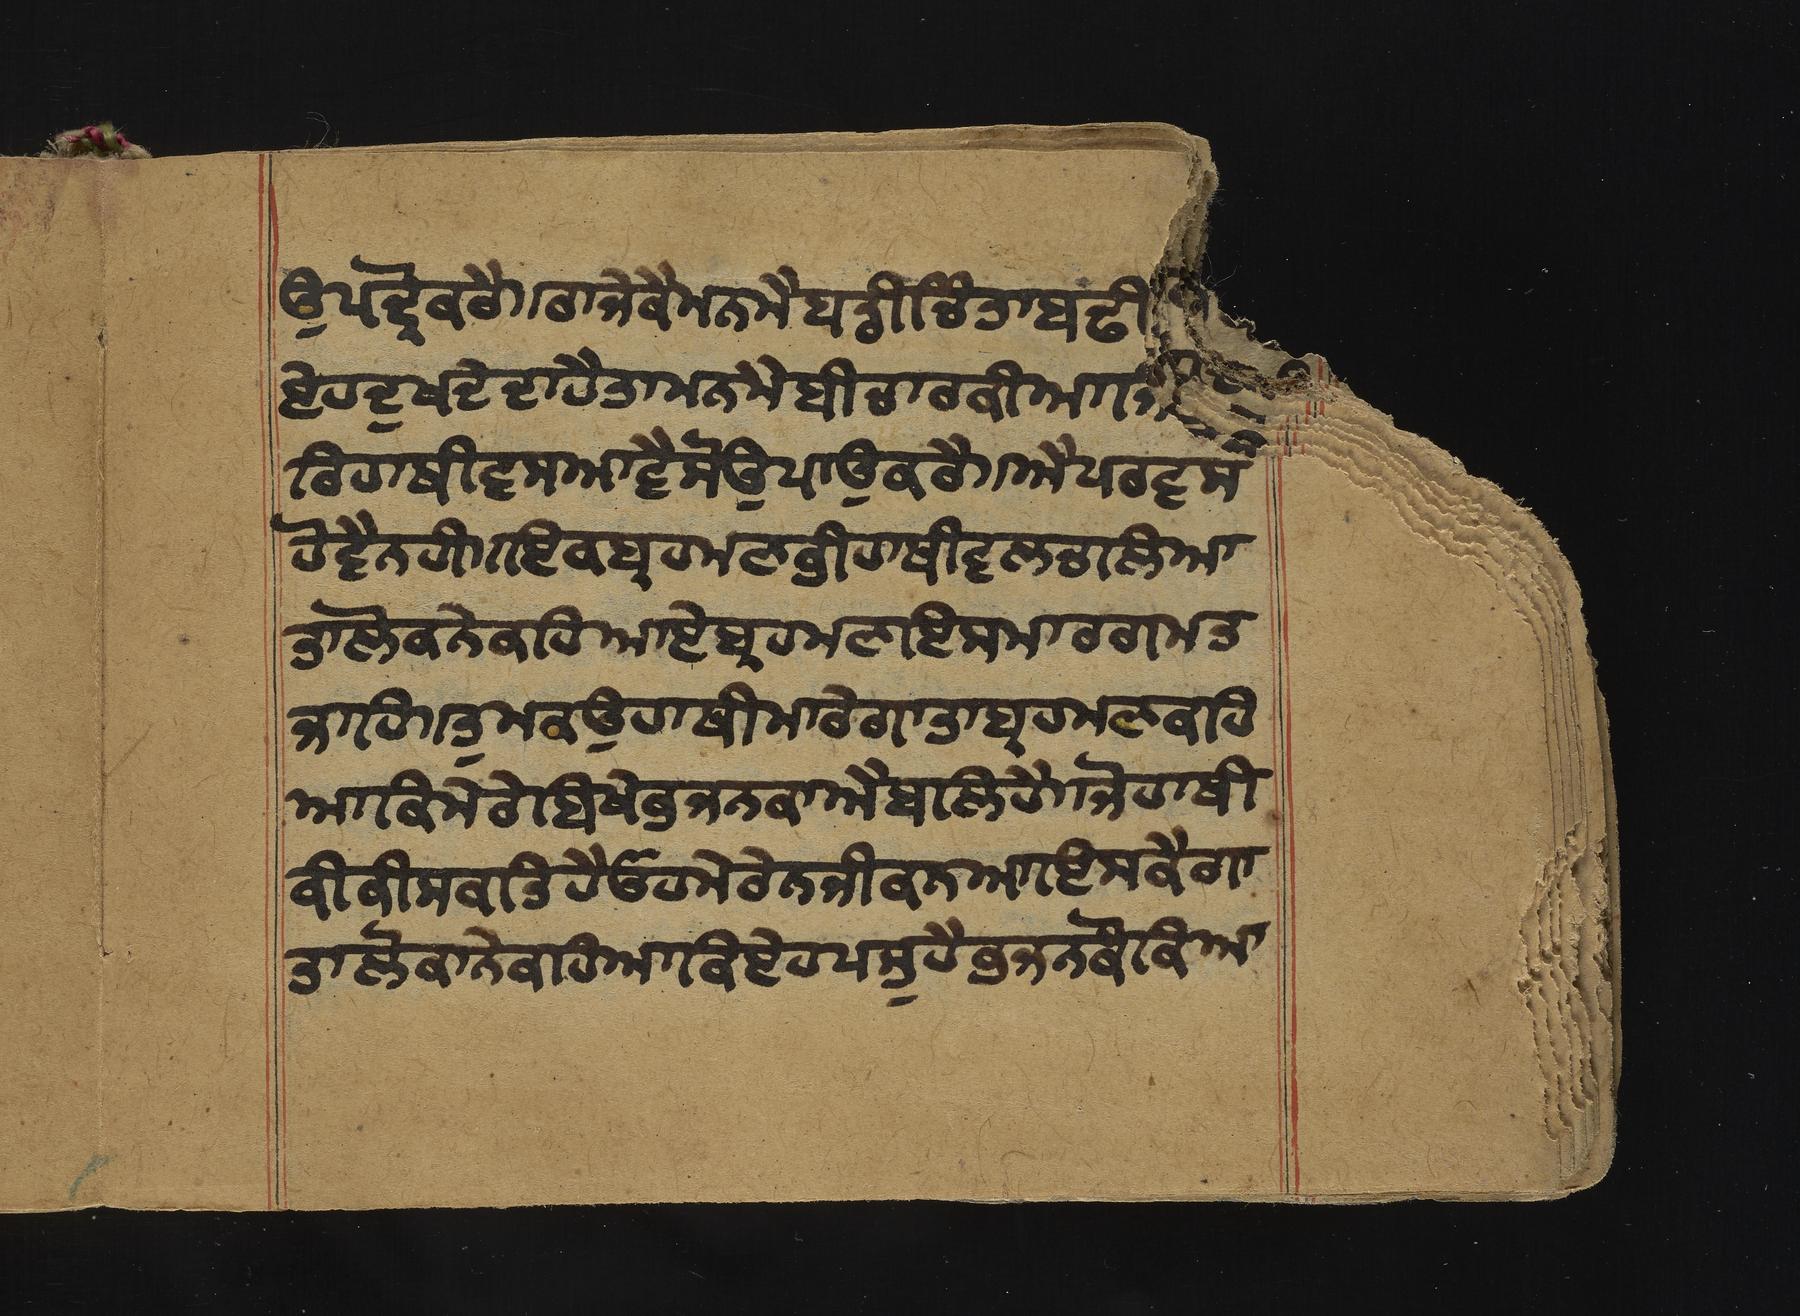 ਉਪਦ੍ਰੋਕਰੈ।ਰਾਜੇਕੈਮਨਮੈਬਡੀਚਿੰਤਾਬਢੀ
ਏਹਦੁਖਦੇਦਾਹੈਤਾਮਨਮੈਬੀਚਾਰਕੀਆ
ਰਿਹਾਥੀਵਸਆਵੈਸੋਉਪਾਉਕਰੈ।ਐਪਰਵਸ
ਹੋਵੈਨਹੀ।ਇਕਬ੍ਰਹਮਣਭੀਹਾਥੀਵਲਚਾਲਿਆ
ਤਾਲੋਕਨੇਕਹਿਆਏਬ੍ਰਹਮਣਇਸਮਾਰਗਮਤ
ਜਾਹਿ।ਤੁਮਕਉਹਾਥੀਮਾਰੇਗਾਤਾਬ੍ਰਹਮਣਕਹਿ
ਆਕਿਮੇਰੇਬਿਖੇਭਜਨਕਾਐਬਲਿਹੈ।ਜੋਹਾਥੀ
ਕੀਕੀਸਕਤਿਹੈਓਹਮੇਰੇਨਜੀਕਨਆਇਸਕੈਗਾ
ਤਾਲੋਕਾਨੇਕਾਹਿਆਕਿਏਹਪਸੁਹੈਭਜਨਕੌਕਿਆ